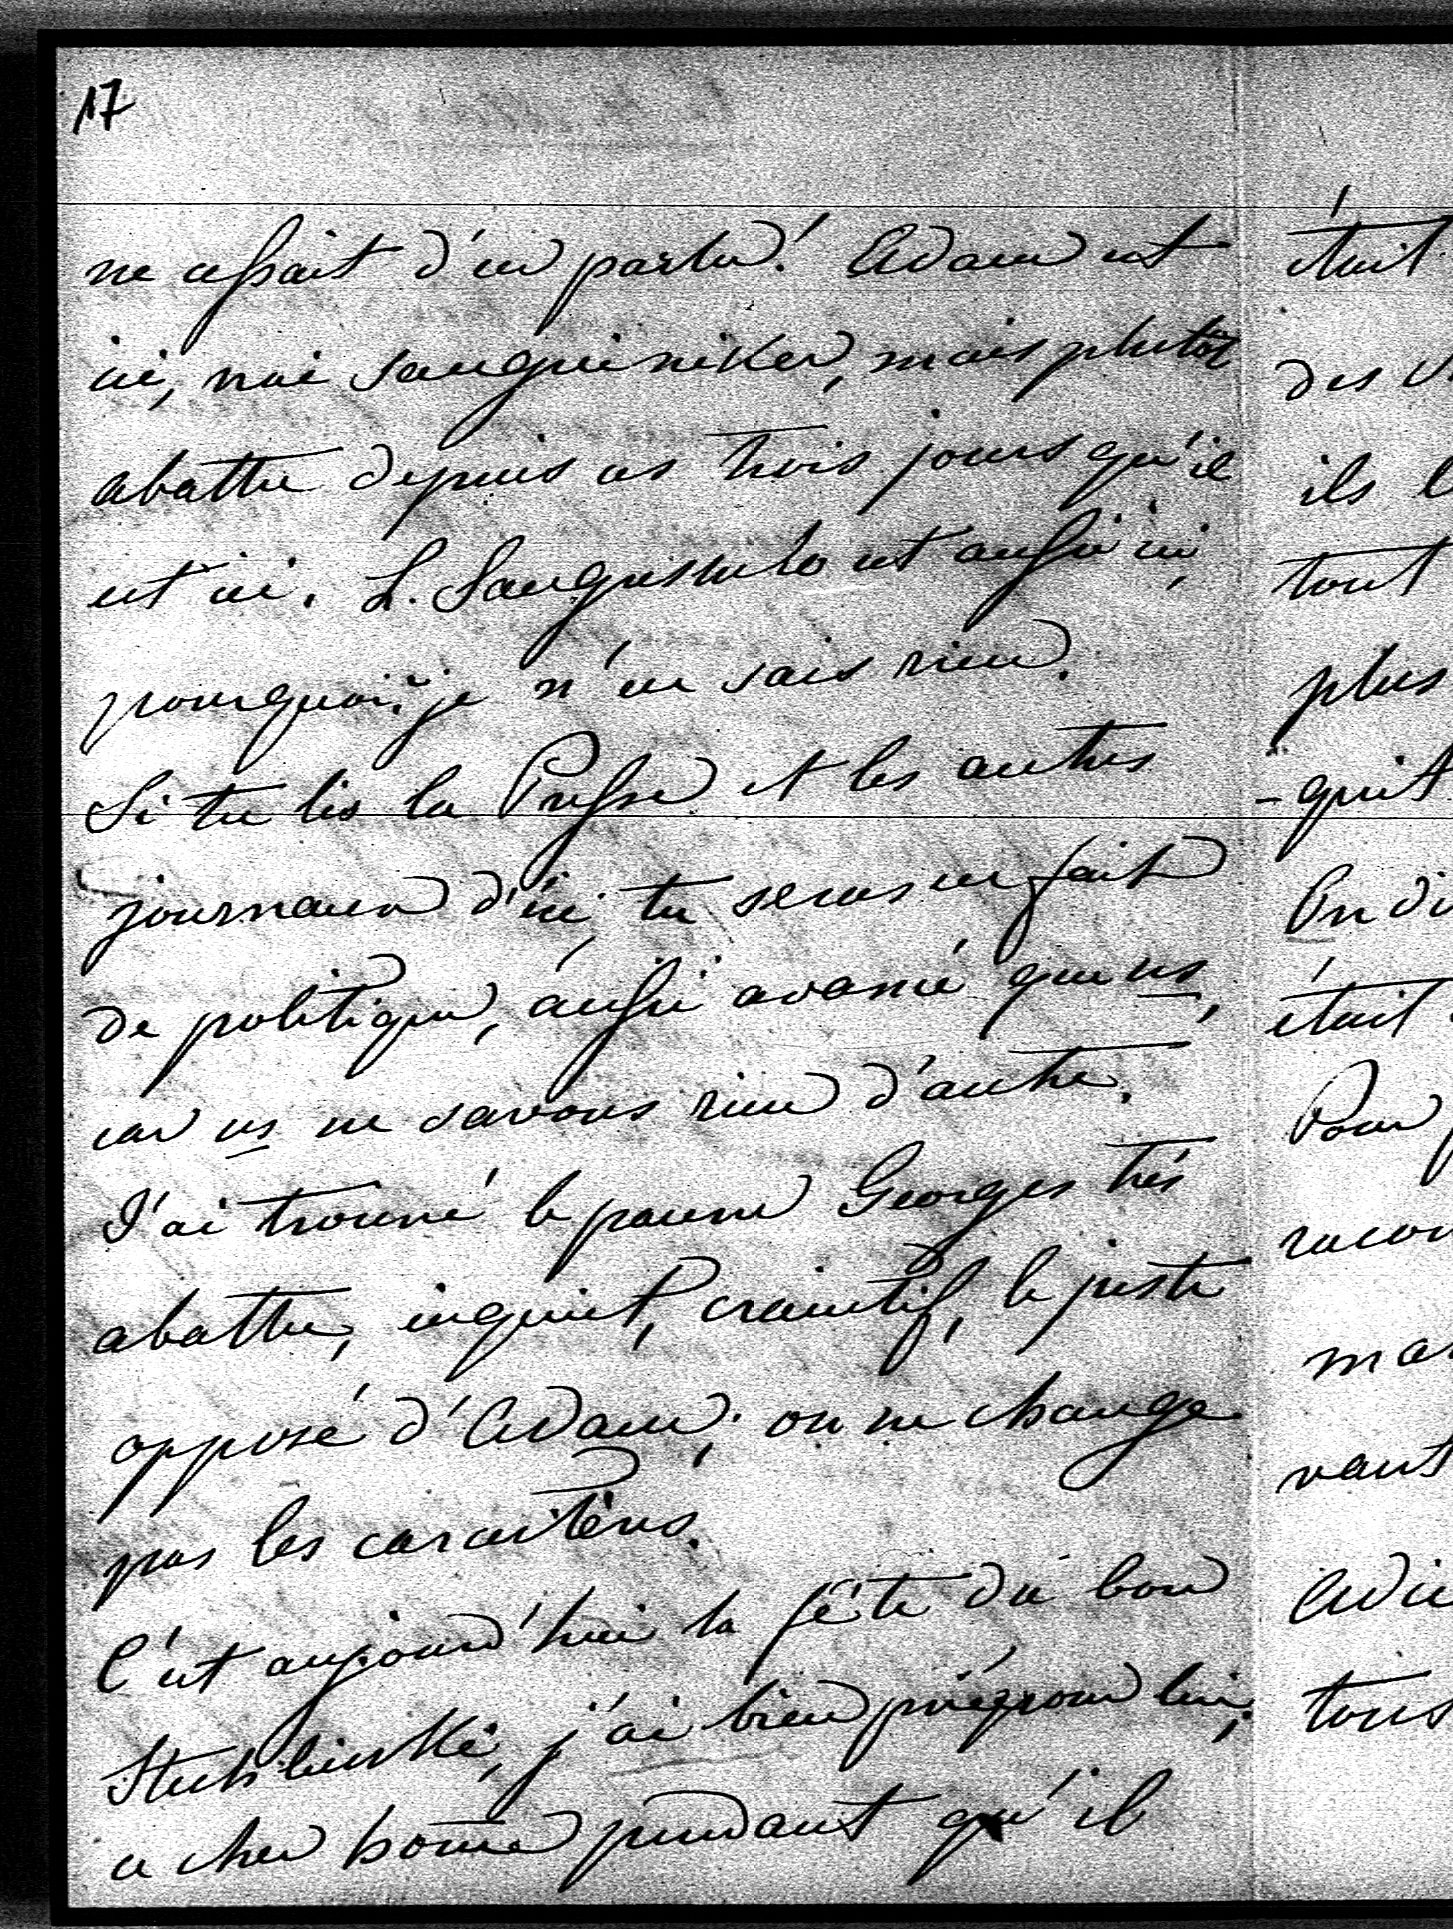 17
ne cessait d'en parler! Adam est
ici, moi sanguiniker, mais plutôt
abattu depuis ces trois jours qu'il
est ici. L. Sanguszko est aussi ici,
pourquoi? je n'en sais rien.
Si tu lis la Presse et les autres
journaux d'ici, tu seras en fait
de politique, aussi avancé que ns,
car ns ne savons rien d'autre.
J'ai trouvé le pauvre Georges très
abattu, inquiet, craintif, le juste
opposé d'Adam; on ne change
pas les caractères.
C'est aujourd'hui la fête du bon
j'ai bien prié pour lui;
ce cher home pendant qu'il
était
des
ils
tout
plus
-quit
On di
était
Pour
racon
mar
vant
Adie
tous